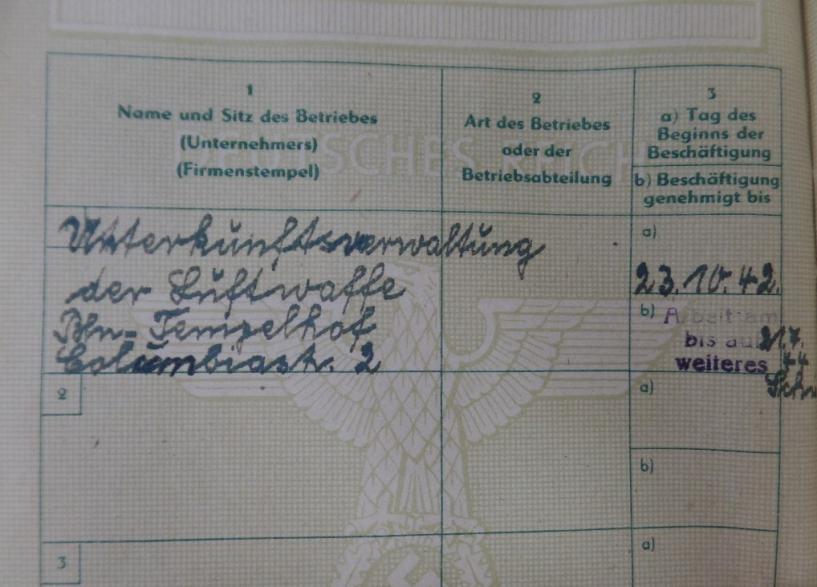 DEUTSCHES REICH
1
Name und Sitz des Betriebes
(Unternehmers)
(Firmenstempel)
2
Art des Betriebes
oder der
Betriebsabteilung
3
a) Tag des
Beginns der
Beschäftigung
b) Beschäftigung
genehmigt bis
Unterkunftsverwaltung
der Luftwaffe
Bln-Tempelhof
Columbiastr. 2
a)
23.10.42.
b)
bis auf
weiteres
2
a)
b)
3
a)